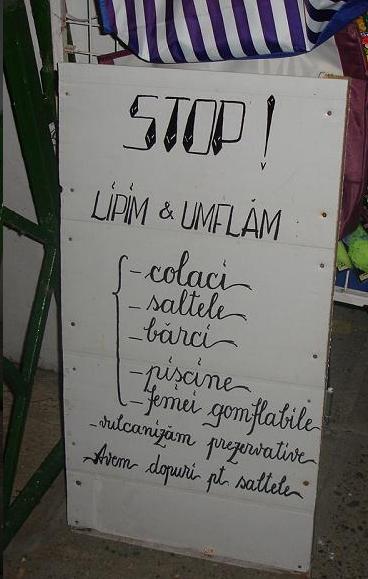 STOP!
LIPIM & UMFLĂM
- colaci
- saltele
- bărci
- piscine
- femei gomflabile
- vulcanizăm prezervative
- Avem dopuri pt saltele